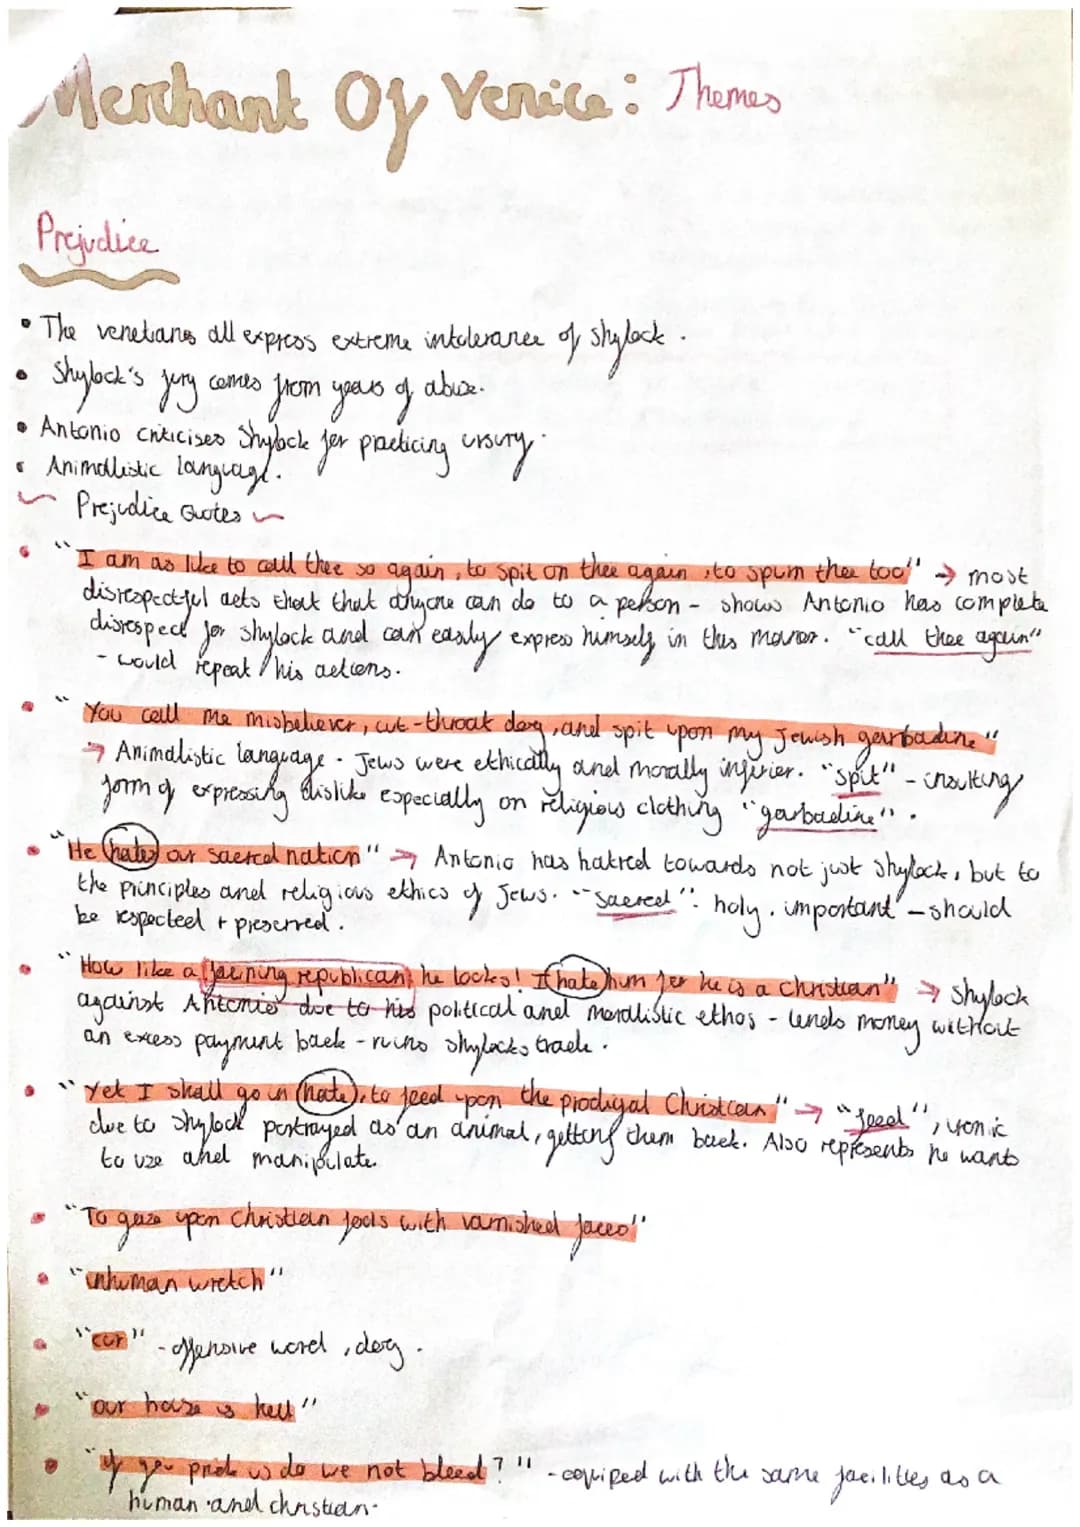 Merchant Of Venice: Themes
Prejudice
• The venetians all express extreme intolerance of Shylock.
• Shylock's fury comes from years of abuse.
• Antonio criticises Shylock for practicing usury.
• Animallistic language.
~ Prejudice Quotes ~
• "I am as like to call thee so again, to spit on thee again, to spurn thee too" → most
disrespectful acts that that anyone can do to a person - shows Antonio has complete
disrespect for Shylock and can easily express himself in this manor. "call thee again"
- would repeat his actions.
• "You call me misbeliever, cut-throat dog, and spit upon my Jewish garbadine"
→ Animalistic language - Jews were ethically and morally inferier. "Spit" - insulting
form of expressing dislike especially on religious clothing "garbadine".
• "He hates our sacred nation" → Antonio has hatred towards not just Shylock, but to
the principles and religious ethics of Jews. "Sacred": holy, important - should
be respected + preserved.
• "How like a fawning republican he looks! I hate him for he is a Christian" → Shylock
against Antonio due to his political and moralistic ethos - lends money without
an excess payment back - ruins Shylocks trade.
• "Yet I shall go in hate, to feed upon the prodigal Christian" → "feed", ironic
due to Shylock portrayed as an animal, getting them back. Also represents he wants
to use and manipulate.
• "To gaze upon Christian fools with varnished faces"
• "inhuman wretch"
• "cur" - offensive word, dog.
• "our house is hell"
• "if you prick us do we not bleed?" - equiped with the same facilities as a
human and christian.